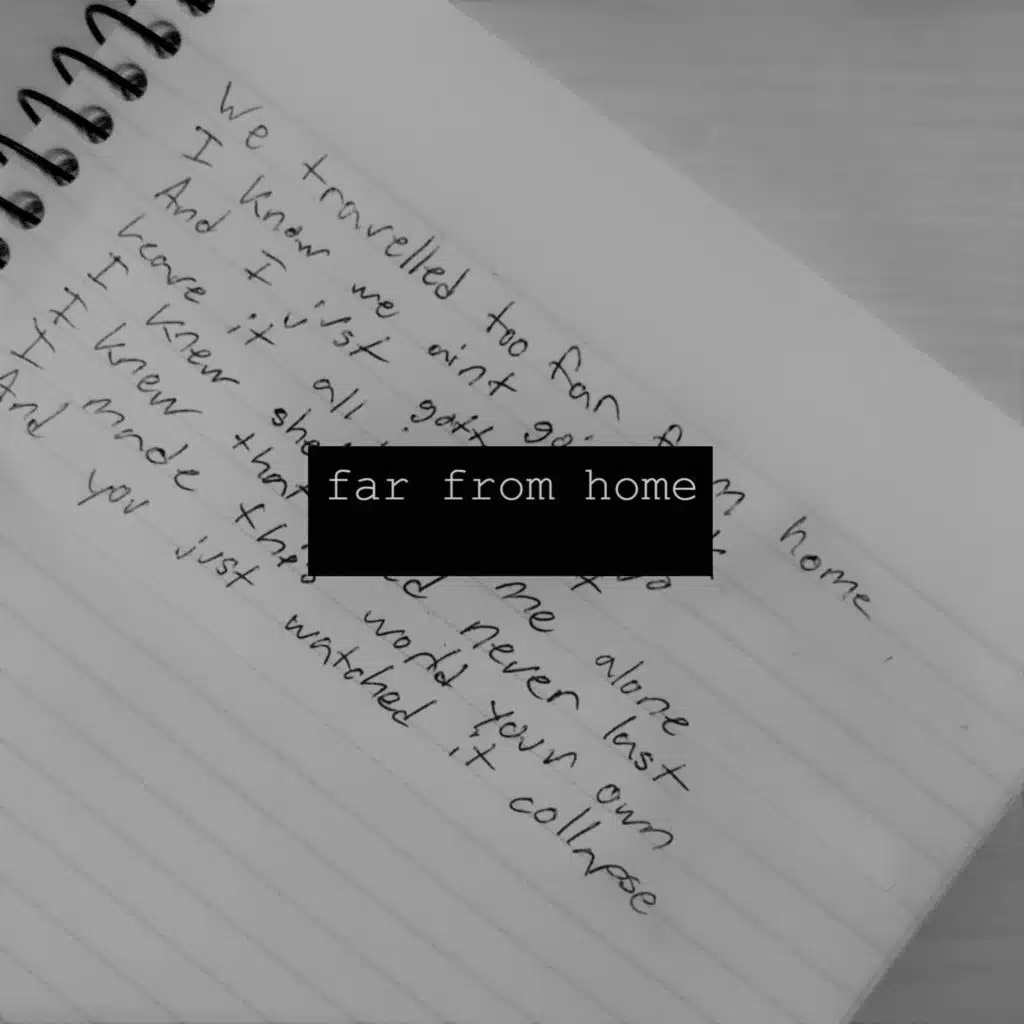 We travelled too far from home
I know we aint
And I just
Leave it all
I knew she me alone
I knew that never last
I made this world your own
And you just watched it collapse
far from home